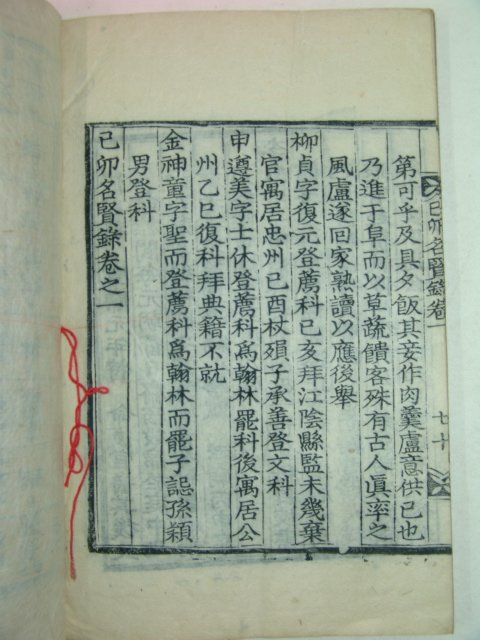 己卯名賢錄卷一
七十
第可乎及具夕飯其妾作肉羹盧意供已也
乃進于阜而以草蔬饋客殊有古人眞率之
風盧遂回家熟讀以應後擧
柳貞字復元登薦科己亥拜江陰縣監未幾棄
官寓居忠州己酉杖殞子承善登文科
申遵美字士休登薦科爲翰林罷科後寓居公
州乙巳復科拜典籍不就
金神童字聖而登薦科爲翰林而罷子誋孫穎
男登科
己卯名賢錄卷之一